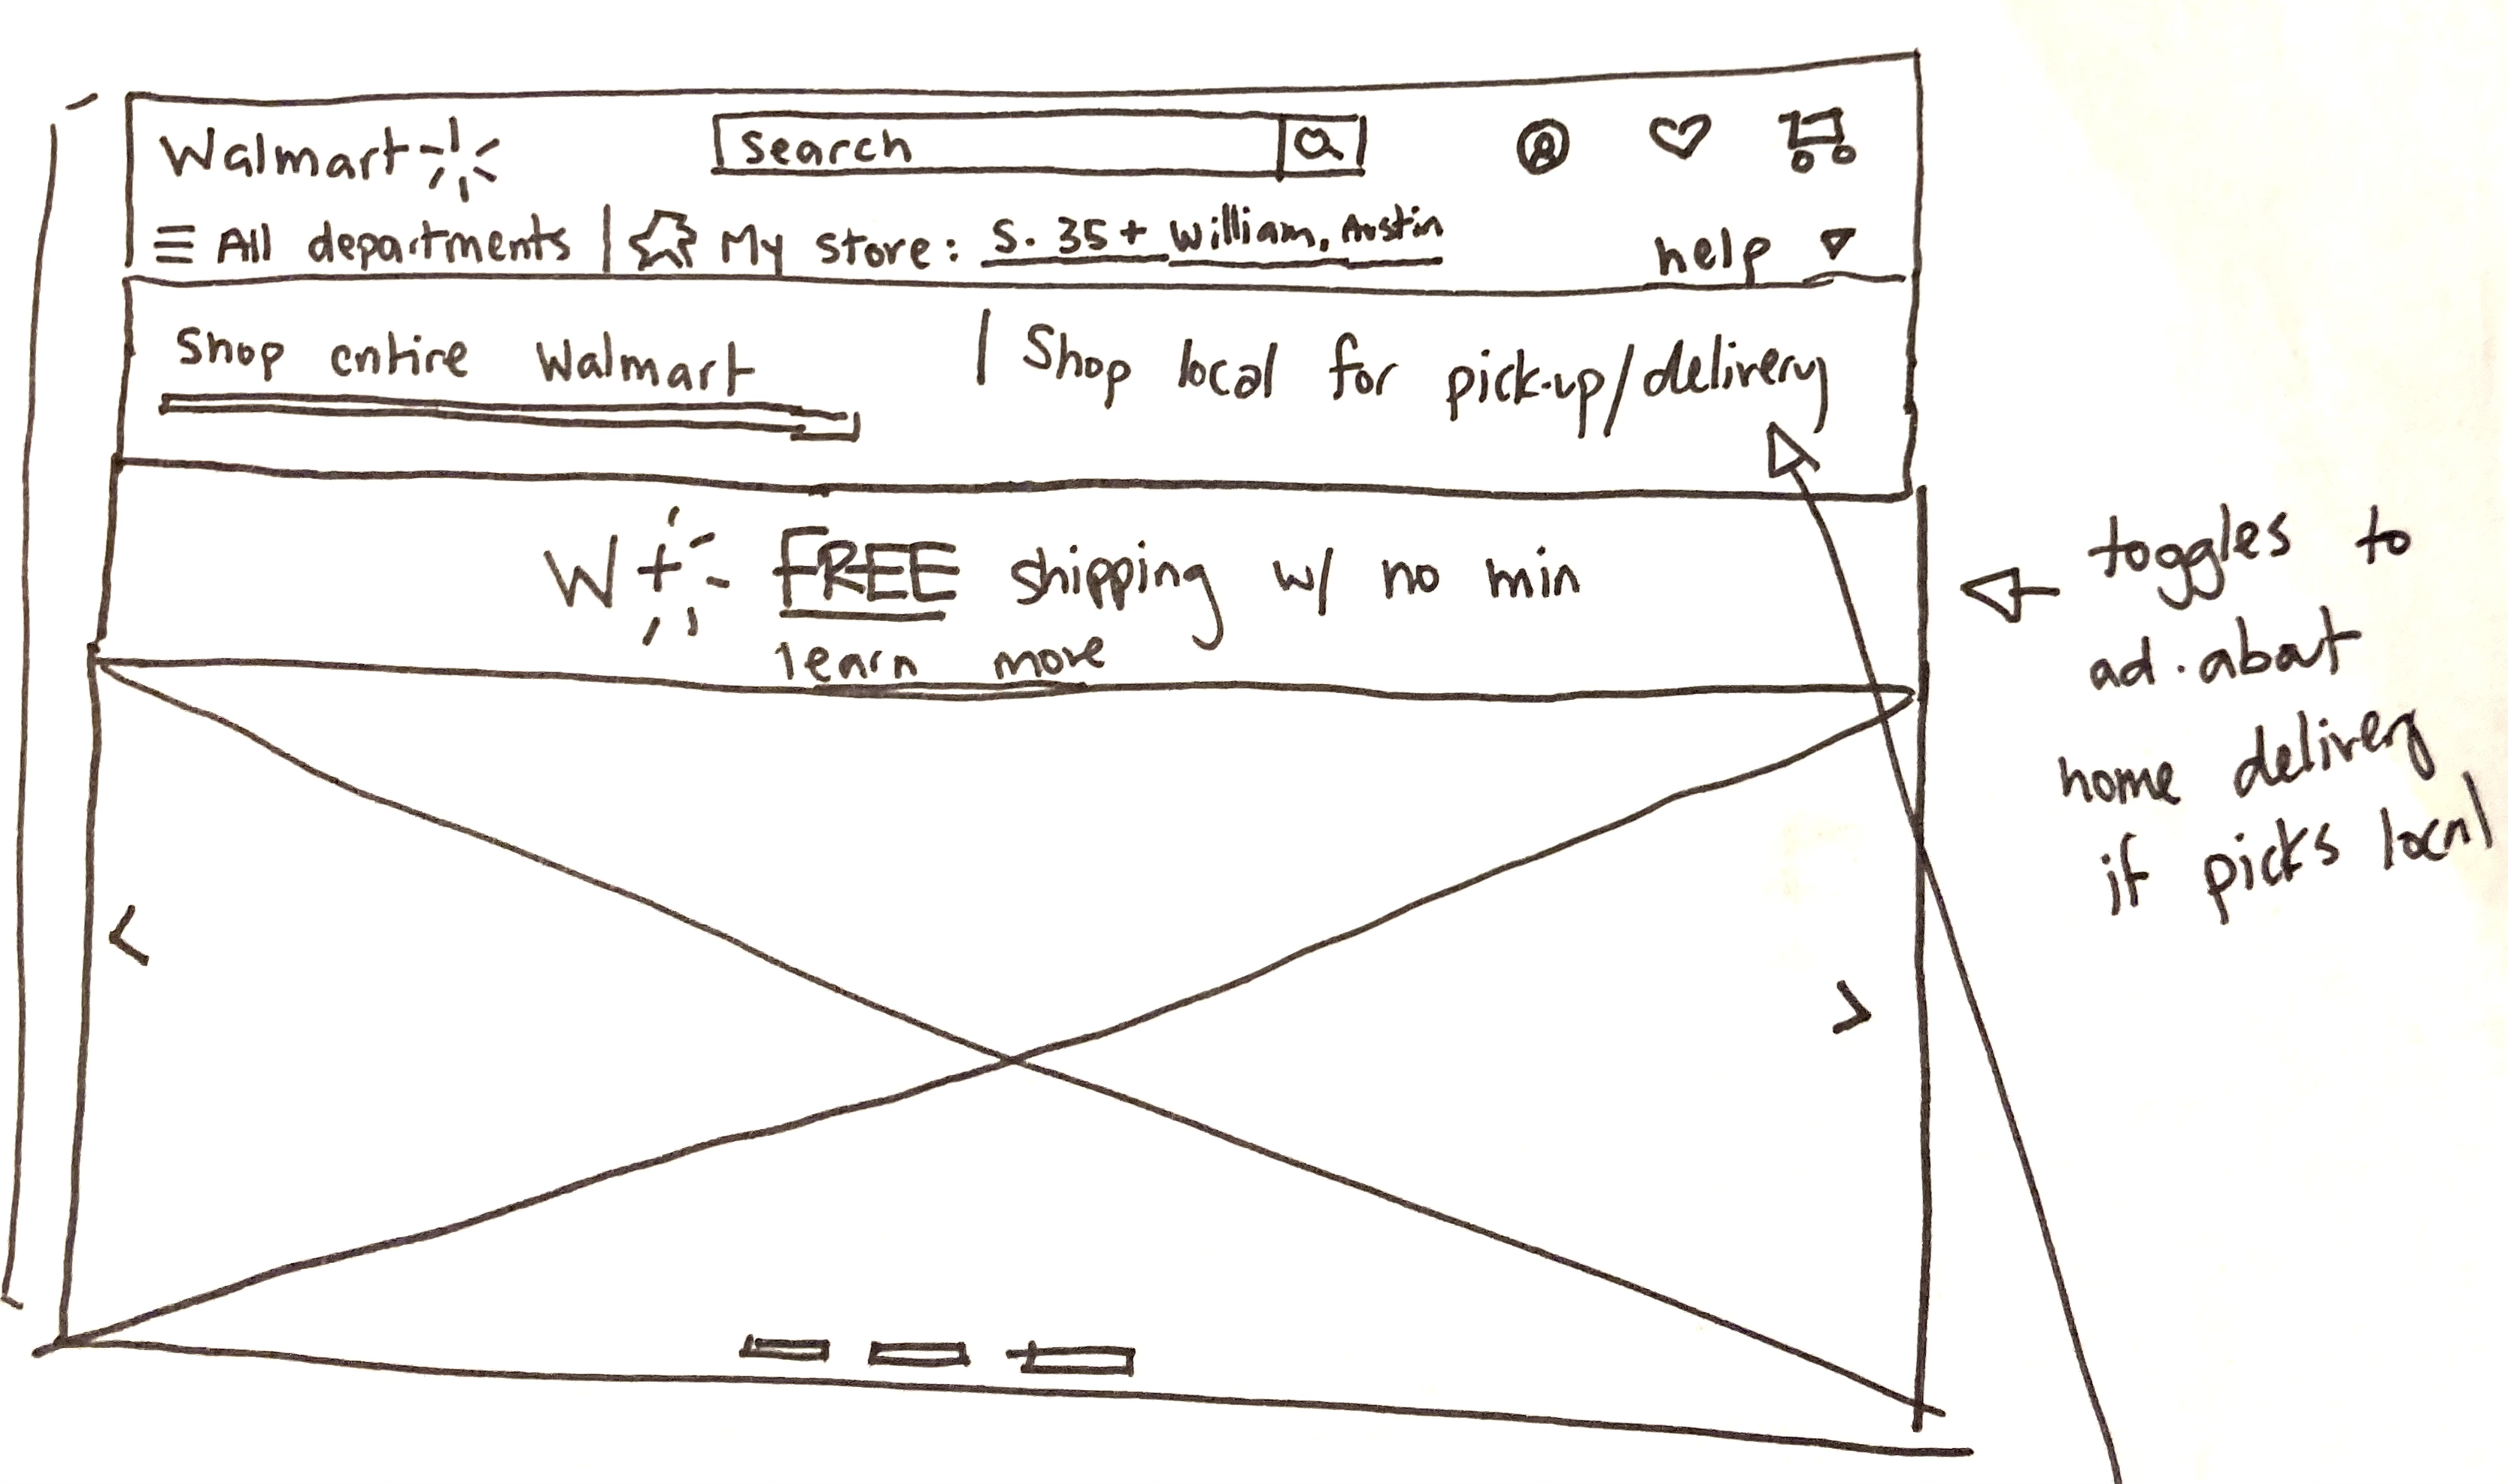 Walmart
search
All departments | My store: S. 35 + William, Austin
help
Shop entire Walmart | Shop local for pick-up/delivery
W+ FREE shipping w/ no min
learn more
<
>
toggles to
ad. about
home delivery
if picks local